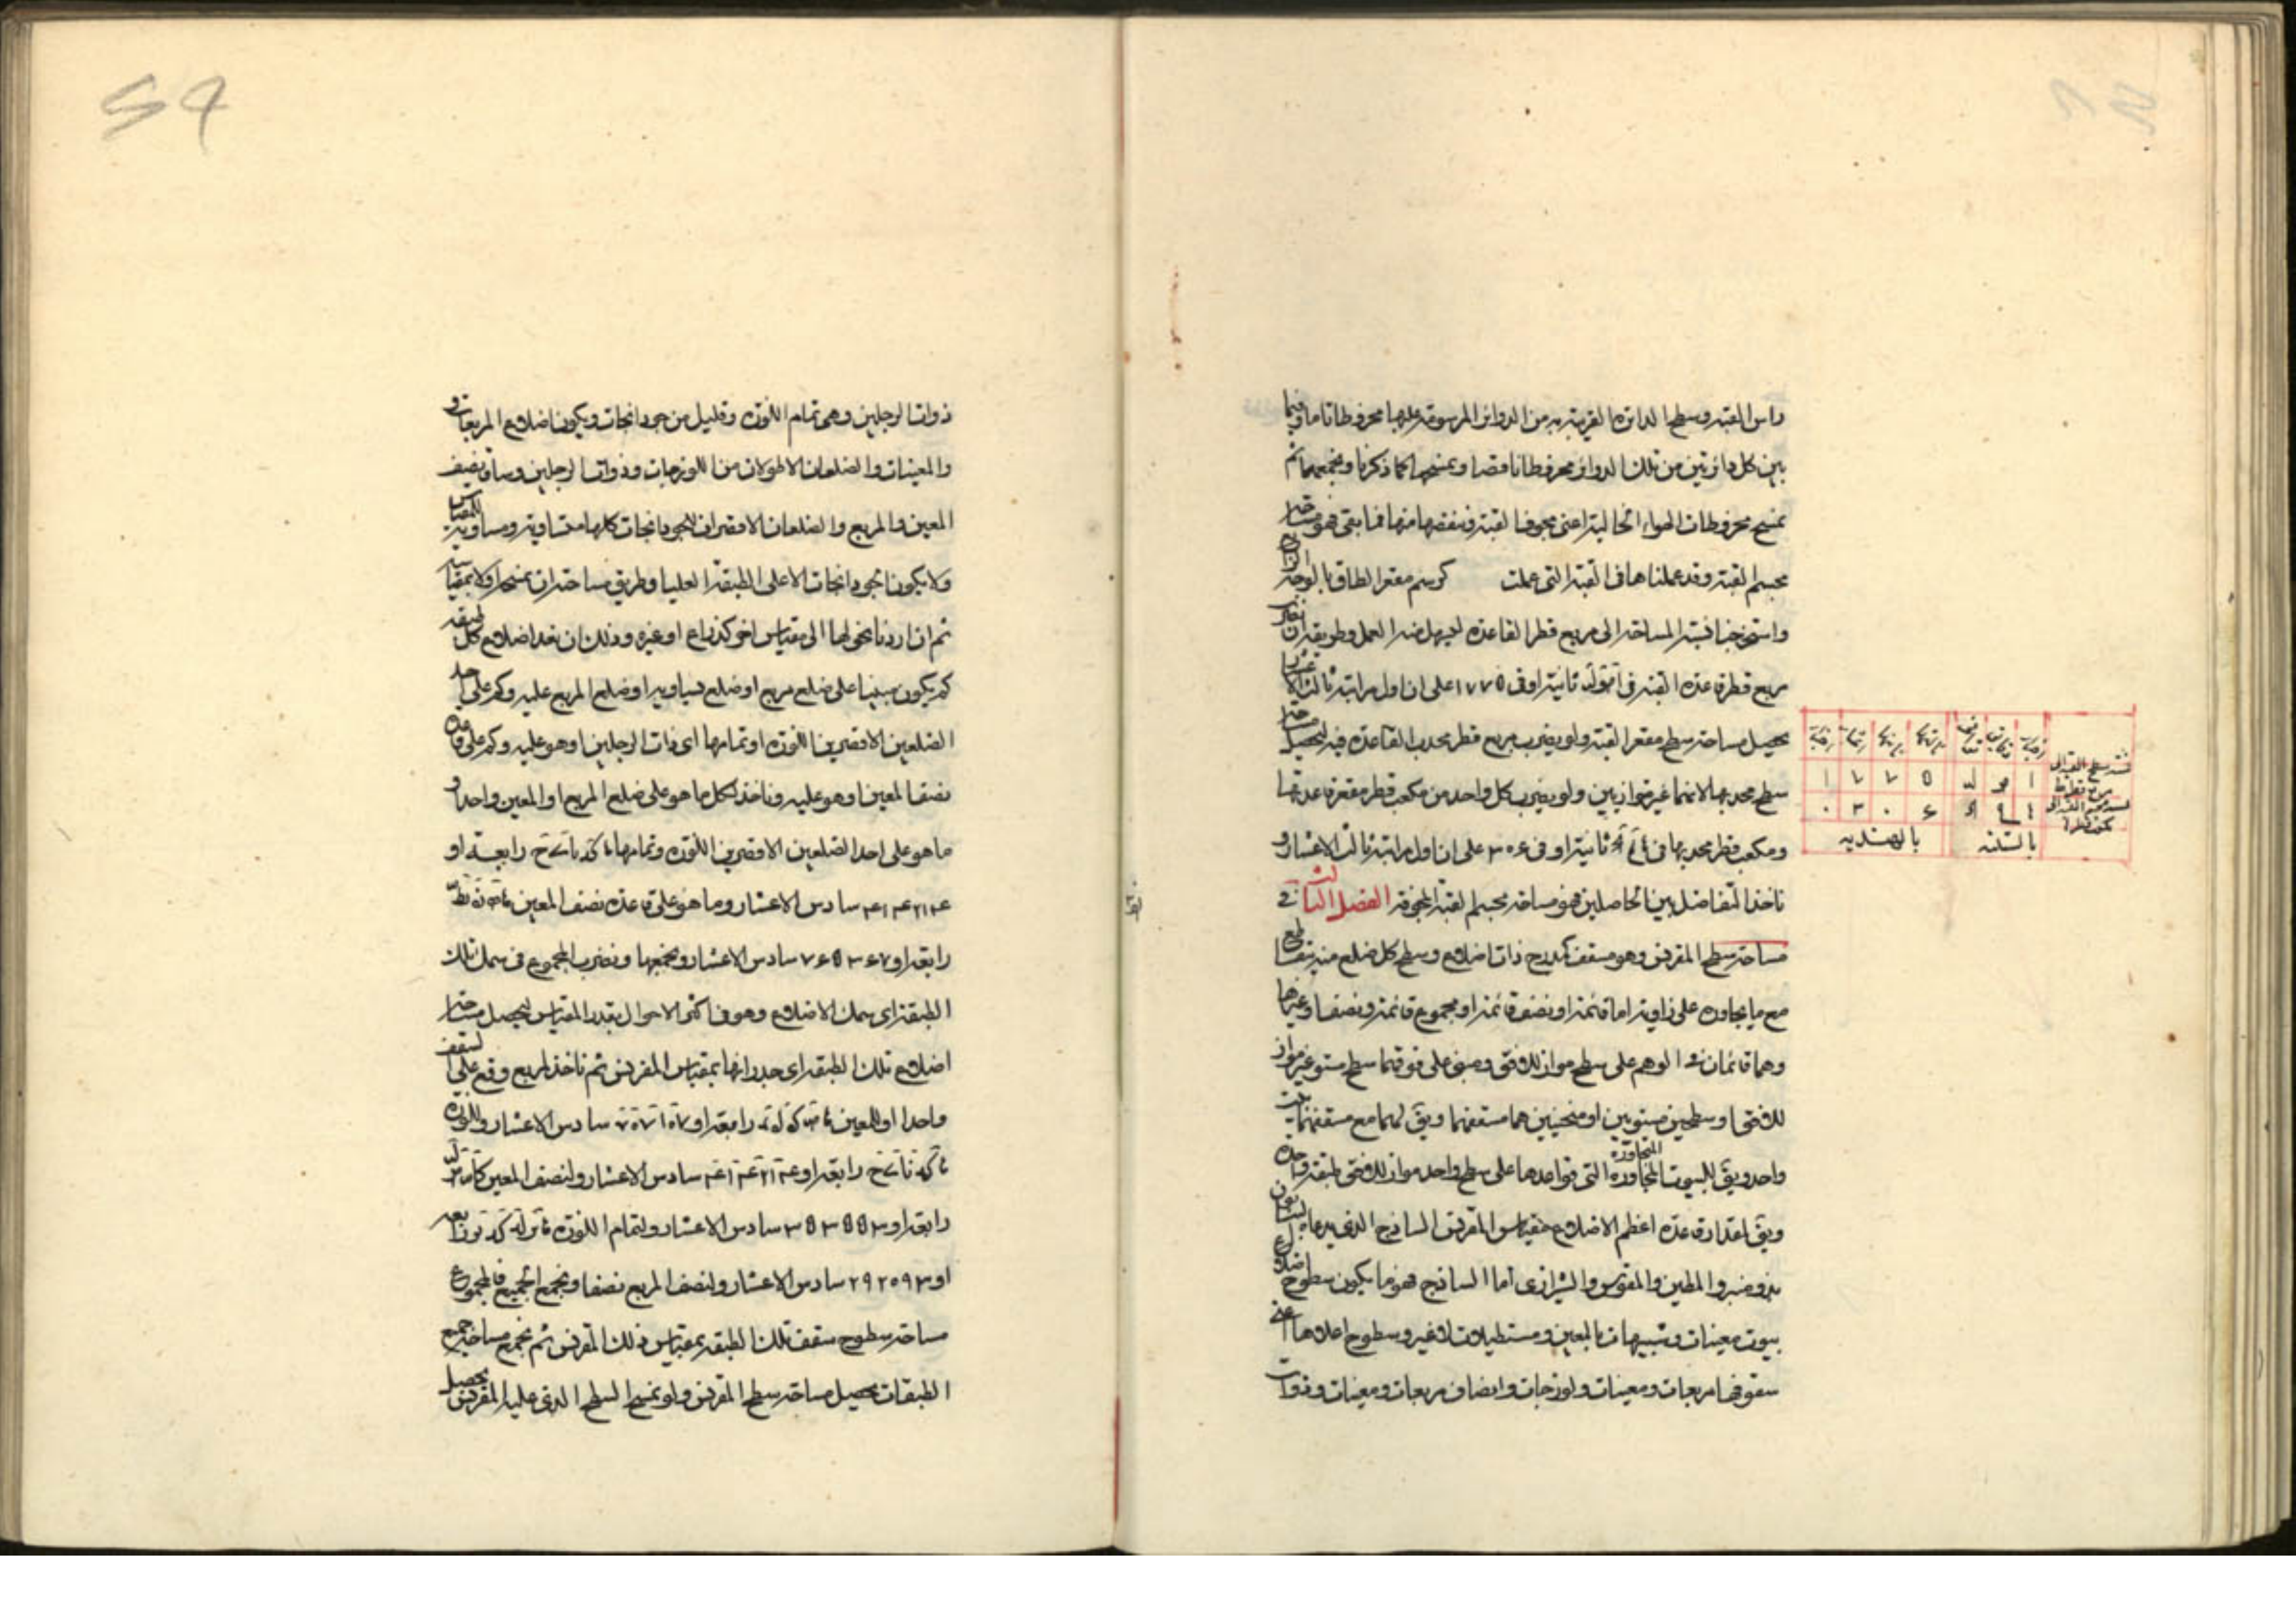 راس القبة وسطح الدائرة القريبة به من الدوائر المرسومة عليها مخروطا تاما وفيما
بين كل دائرتين من تلك الدوائر مخروطا ناقصا ونمسحها كما ذكرنا ونجمعها ثم
نمسح مخروطات الهواء الخالية اعنى مجوف القبة وننقصها منها فما بقى فهو مساحة
مجسم القبة وقد عملناها فى القبة التى عملت كرسم مقعر الطاق بالوجه الرابع
واستخرجنا نسبة المساحة الى مربع قطر القاعدة ليسهل هذا العمل وطريقه ان نضرب
مربع قطر قاعدة القبة فى ا مو لد ثانية او فى ١٧٧٥ على ان اول مراتبه ثالث الاعشار
يحصل مساحة سطح مقعر القبة ولو يضرب مربع قطر محدب القاعدة فيه ليحصل مساحة
سطح محدبها لانهما غير متوازيين ولو يضرب كل واحد من مكعب قطر مقعر قاعدتها
ومكعب قطر محدبها فى ثانية او فى ٣٠٦ على ان اول مراتبه ثالث الاعشار و
ناخذ التفاضل بين الحاصلين فهو مساحة مجسم القبة المجوفة الفصل الثالث فى
مساحة سطح المقرنس وهو مسقف كمدرج ذات اضلاع وسطح كل ضلع منه يتقاطع
مع ما يجاوره على زاوية اما قائمة او نصف قائمة او مجموع قائمة ونصفها وغيرها
وهما قائمان فى الوهم على سطح مواز للافق ومبنى على فوقهما سطح مستو غير مواز
للافق او سطحين مستويين او منحنيين هما مسقفهما ويق لهما مع مسقفهما بيت
واحد ويق للبيوت المتجاورة التى قواعدها على سطح واحد مواز للافق طبقة واحدة
ويق لمقدار قاعدة اعظم الاضلاع مقياس المقرنس الساذج الذى يدعاه البناؤون
بمنبر والمطين والمقوس والشيرازى اما الساذج فهو ما يكون سطوح اضلاع
بيوت معينات وشبيهات بالمعين ومستطيلات لاغير وسطوح اعلاها اعنى
سقوفها مربعات ومعينات ولوزجات وانصاف مربعات ومعينات وذوات
بالستينيه
بالهنديه
١ ٧ ٧ ٥
٠ ٣ ٠ ٦
ذوات الرجلين وهى تمام اللوزة وقليل من جودانجات ويكون اضلاع المربعات و
والمعينات والضلعان الاطولان من اللوزجات وذوات الرجلين وساق نصف
المعين والمربع والضلعان الاقصران لجودانجات كلها متساوية ومساوية للمقياس
ولا يكون الجودانجات الا على الطبقة العليا وطريق مساحته ان نمسحه اولا بمقياسه
ثم ان اردنا نحولها الى مقياس اخر كذراع او غيره وذلك ان نعد اضلاع كل طبقة
كم يكون مبنيا على ضلع مربع او ضلع يساويه او ضلع المربع عليه وكم على احد
الضلعين الاقصرين اللوزة او تمامها اى ذات الرجلين او هو عليه وكم على قاعدة
نصف المعين او هو عليه وناخذ لكل ما هو على ضلع المربع او المعين واحدا و
ما هو على احد الضلعين الاقصرين اللوزة وتمامها رابعة او
٤١٤٢١٤ سادس الاعشار وما هو على قاعدة نصف المعين
رابعة او ٧٦٥٣٦٧ سادس الاعشار ونجمعها ونضرب المجموع فى سمك تلك
الطبقة اى سمك الاضلاع وهو فى اكثر الاحوال بقدر المقياس ليحصل مساحة
اضلاع تلك الطبقة اى جدرانها بمقياس المقرنس ثم ناخذ لمربع وقع على السقف
واحدا او للمعين رابعة او ٧٠٧١٠٧ سادس الاعشار وللوزة
رابعة او ٤١٤٢١٤ سادس الاعشار ولنصف المعين
رابعة او ٣٥٣٥٥٣ سادس الاعشار ولتمام اللوزة رابعة
او ٢٩٢٥٩٣ سادس الاعشار ولنصف المربع نصفا ونجمع الجميع فالمجموع
مساحة سطوح سقف تلك الطبقة بمقياس ذلك المقرنس ثم نجمع مساحة جميع
الطبقات يحصل مساحة سطح المقرنس ولو نمسح السطح الذى عليه المقرنس يحصل